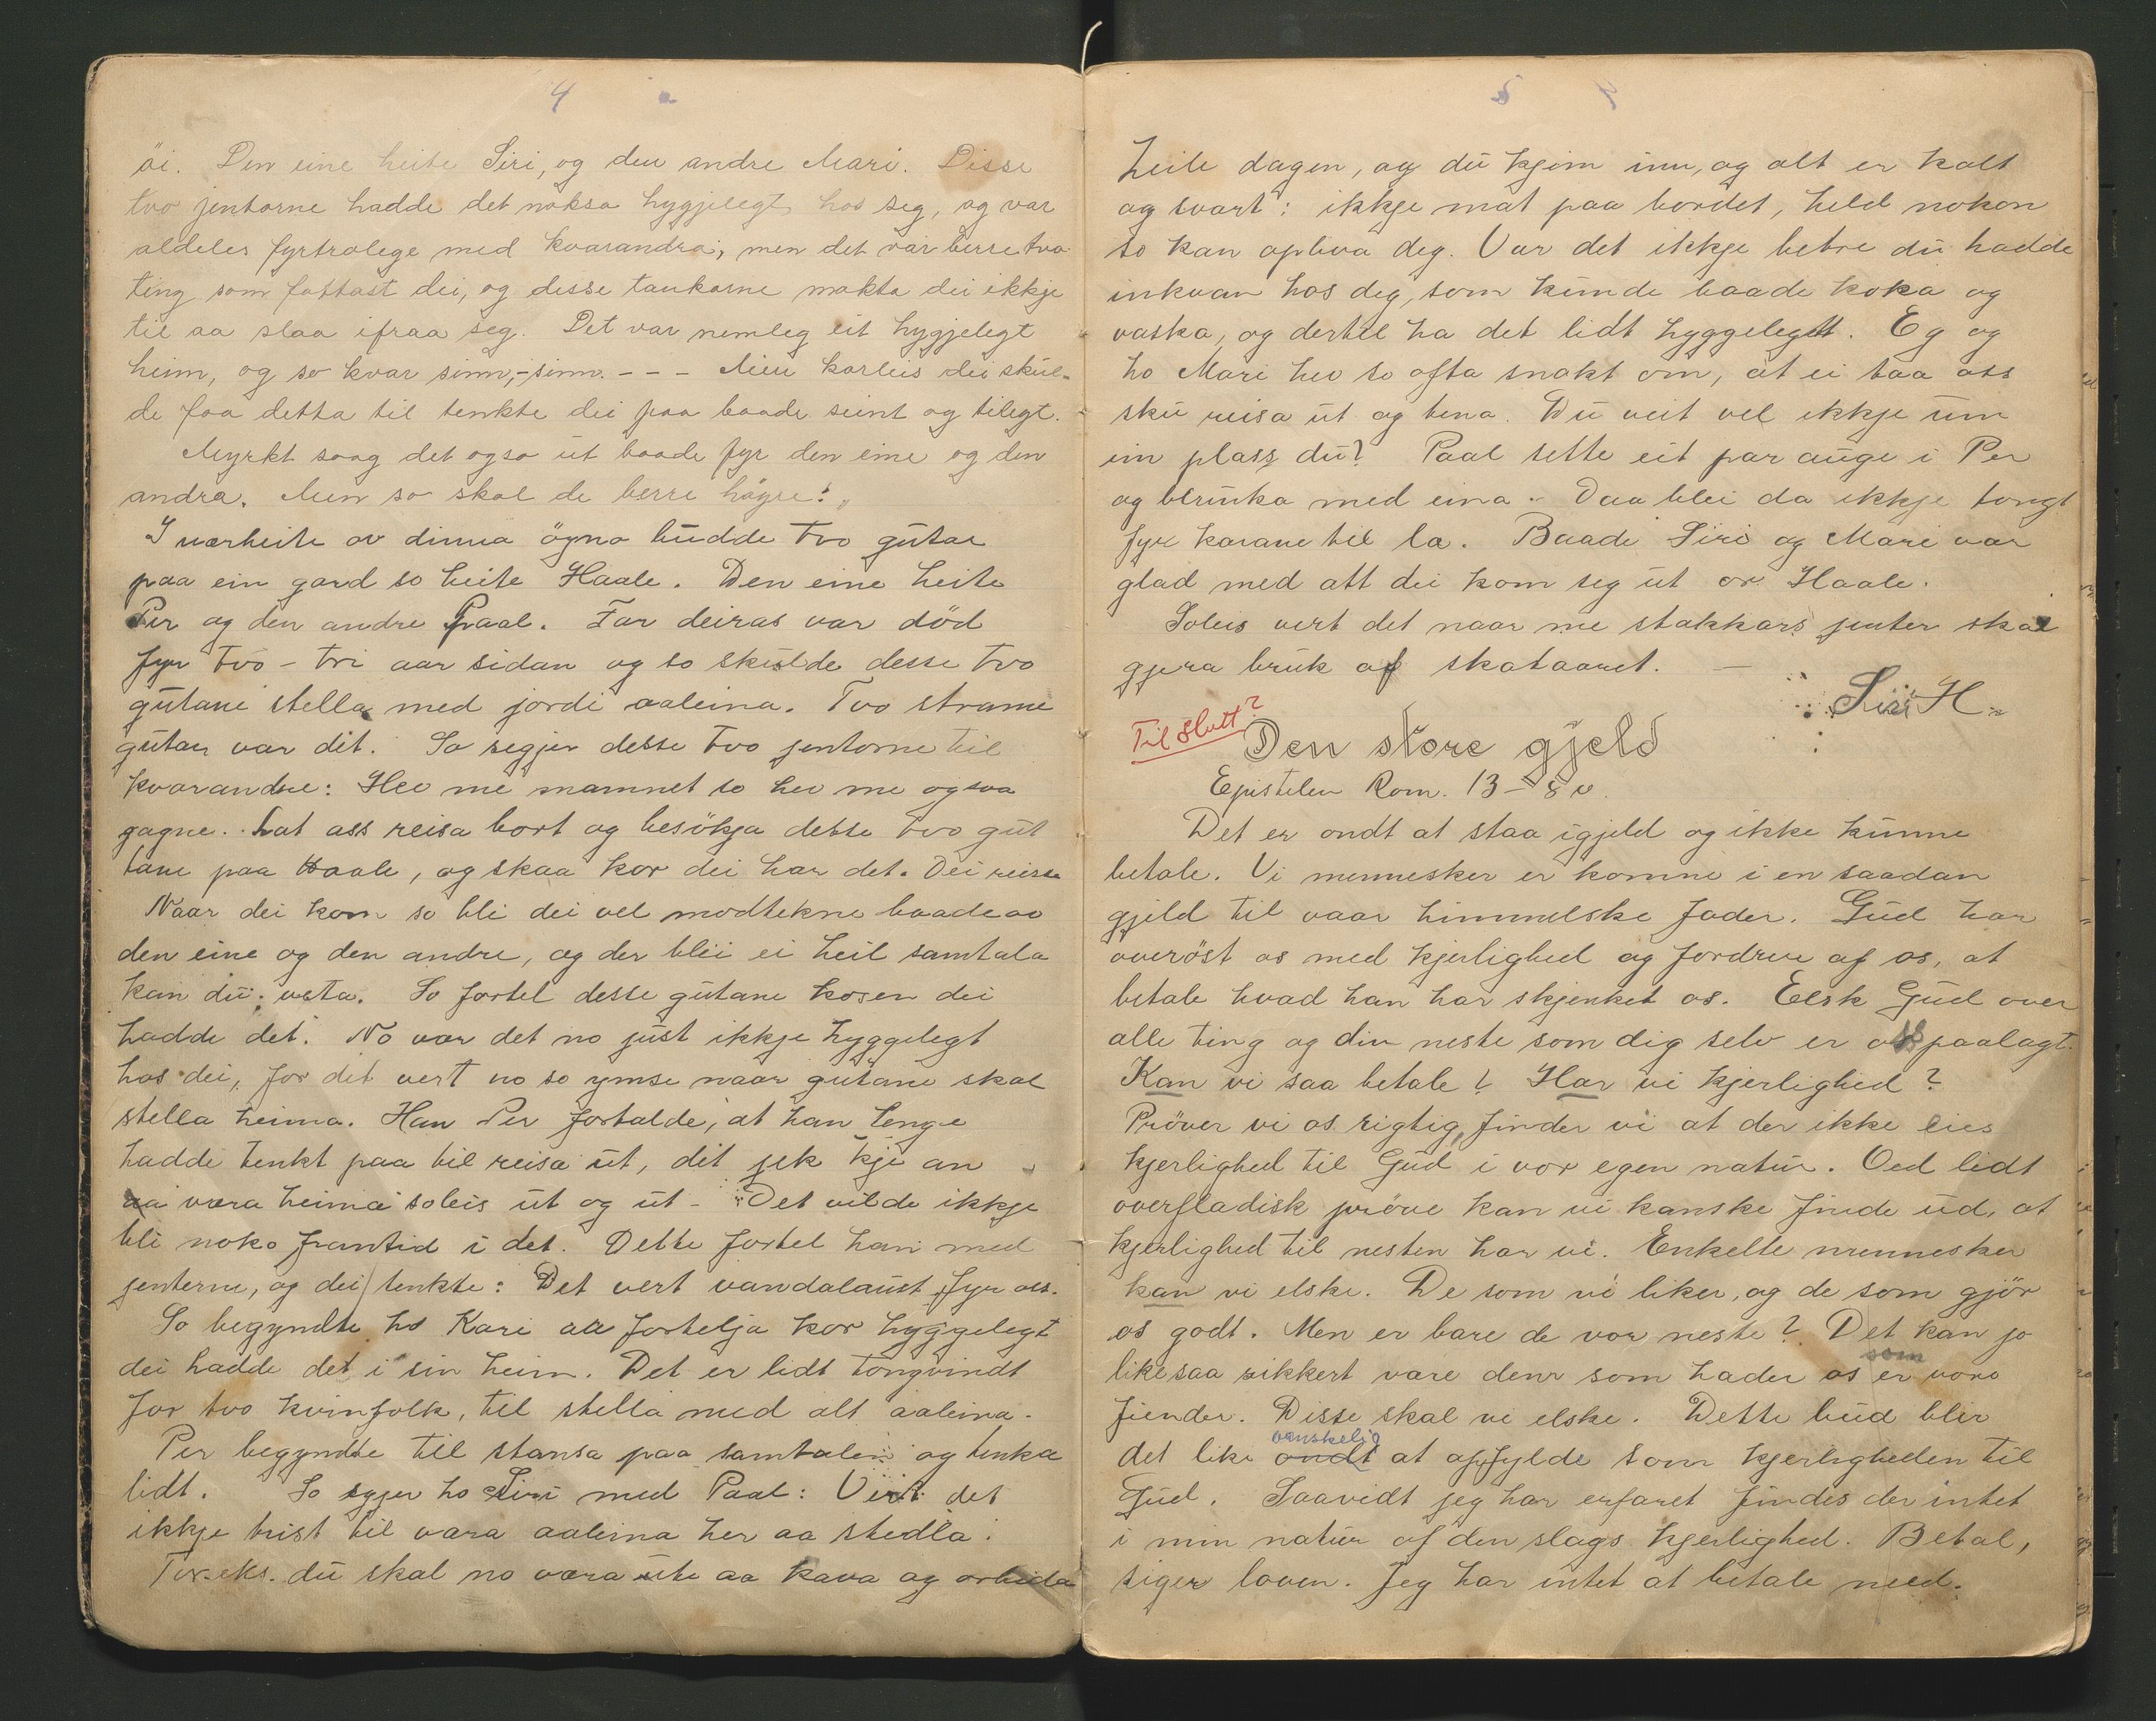 4
öi. Den eine heite Siri, og den andre Mari. Disse
two jentorne hadde det noksa hyggjelegt hos seg, og var
aldeles fyrtrolege med kvarandra; men det var berre two
ting som fattast dei, og desse tankarne makta dei ikkje
til aa slaa ifraa seg. Det var nemleg eit hyggjelegt
heim, og so kvar sinn,-sinn. - - - Men korleis dei skul-
de faa detta til tenkte dei paa baade seint og tilegt.
Myrkt saag det ogso ut baade fyr den eine og den
andra. Men so skal de berre høyre!
I nærheite av dinna ögno budde two gutar
paa ein gard so heite Haale. Den eine heite
Per og den andre Paal. Far deiras var död
fyr two - tri aar sidan og so skulde desse two
gutane stella med jordi aaleina. Two strame
gutar var dit. So segjer desse two jentorne til
kvarandre: Hev me mamnet so hev me ogsaa
gagne. Lat ass reisa bort og besökja dette two gut
tane paa Haale, og skaa kor dei har det. Dei reise
Naar dei kom so bli dei vel modtekne baade av
den eine og den andre, og der blei ei heil samtala
kan du veta. So fortel desse gutane kosen dei
hadde det. No var det no just ikkje hyggelegt
hos dei, for dit vert no so ymse naar gutane skal
stella heima. Han Per fortalde, at han lenge
hadde tenkt paa til reisa ut, dit jek kje an
aa vara heima soleis ut og ut - Det vilde ikkje
bli noko framtid i det. Dette fortel han med
jenterne, og dei tenkte: Det vert vandalaust fyr oss.
So begyndte ho Kari aa fortelja kor hyggelegt
dei hadde det i sin heim. Det er lidt tongvindt
for two kvinfolk, til stella med alt aaleina.
Per begyndte til stansa paa samtalen og tenka
lidt. So sgjer ho Siri med Paal: Veit det
ikkje trist til vara aaleina her aa stedla.
For.eks. du skal no vara ute aa kava og arbeida
5
heile dagen, og du kjem inn, og alt er kalt
og svart: ikkje mat paa bordet, held nokon
so kan opliva deg. Var det ikkje betre du hadde
inkvan hos deg, som kunde baade koka og
vaska, og dertil ha det lidt hyggelegt. Eg og
ho Mari hev so ofta snakt om, at ei taa oss
sku reisa ut og tena. Du veit vel ikkje um
ein plass du? Paal sette eit par auge i Per
og blunka med eina. Daa blei da ikkje tongt
fyr karane til la. Baade Siri og Mari var
glad med att dei kom seg ut or Haale.
Soleis vert det naar me stakkars jenter skal
gjera bruk af skotaaret. —
Siri H.
Til slutt?
Den store gjeld
Epistelen Rom. 13 - 8 v.
Det er ondt at staa i gjeld og ikke kunne
betale. Vi mennesker er komne i en saadan
gjeld til vaar himmelske fader. Gud har
overöst os med kjerlighed og fordrer af os, at
betale hvad han har skjenket os. Elsk Gud over
alle ting og din neste som dig selv er os paalagt.
Kan vi saa betale? Har vi kjerlighed?
Pröver vi os rigtig, finder vi at der ikke eies
kjerlighed til Gud i vor egen natur. Ved lidt
overfladisk pröve kan vi kanske finde ud, at
kjerlighed til nesten har vi. Enkelte mennesker
kan vi elske. De som vi liker, og de som gjör
os godt. Men er bare de vor neste? Det kan jo
som
likesaa sikkert vare dem som hader os er vore
fiender. Disse skal vi elske. Dette bud blir
vanskelig
det like ondt at opfylde som kjerligheden til
Gud. Saavidt jeg har erfaret findes der intet
i min natur af den slags kjerlighed. Betal,
siger loven. Jeg har intet at betale med.